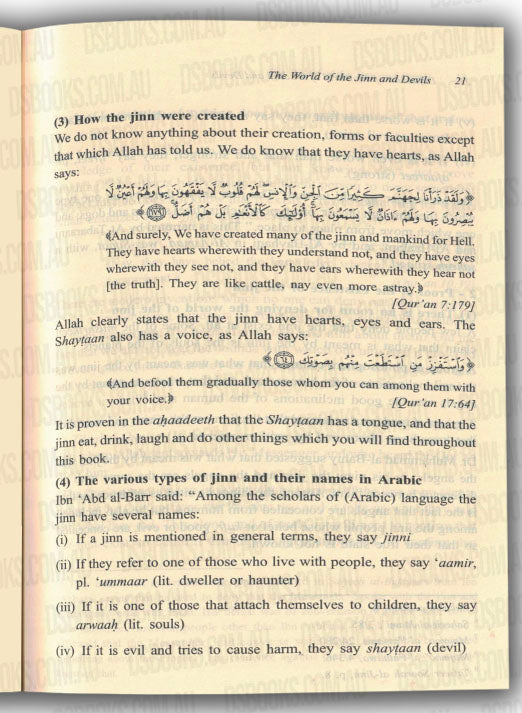 The World of the Jinn and Devils 21
(3) How the jinn were created
We do not know anything about their creation, forms or faculties except
that which Allah has told us. We do know that they have hearts, as Allah
says:
﴿وَلَقَدْ ذَرَأْنَا لِجَهَنَّمَ كَثِيرًا مِّنَ ٱلْجِنِّ وَٱلْإِنسِ لَهُمْ قُلُوبٌ لَّا يَفْقَهُونَ بِهَا وَلَهُمْ أَعْيُنٌ لَّا
يُبْصِرُونَ بِهَا وَلَهُمْ ءَاذَانٌ لَّا يَسْمَعُونَ بِهَا أُو۟لَٰٓئِكَ كَٱلْأَنْعَٰمِ بَلْ هُمْ أَضَلُّ ١٧٩﴾
﴾And surely, We have created many of the jinn and mankind for Hell.
They have hearts wherewith they understand not, and they have eyes
wherewith they see not, and they have ears wherewith they hear not
[the truth]. They are like cattle, nay even more astray.﴿
[Qur'an 7:179]
Allah clearly states that the jinn have hearts, eyes and ears. The
Shaytaan also has a voice, as Allah says:
﴿وَٱسْتَفْزِزْ مَنِ ٱسْتَطَعْتَ مِنْهُم بِصَوْتِكَ ٦٤﴾
﴾And befool them gradually those whom you can among them with
your voice.﴿ [Qur'an 17:64]
It is proven in the aḥaadeeth that the Shayṭaan has a tongue, and that the
jinn eat, drink, laugh and do other things which you will find throughout
this book.
(4) The various types of jinn and their names in Arabic
Ibn 'Abd al-Barr said: "Among the scholars of (Arabic) language the
jinn have several names:
(i) If a jinn is mentioned in general terms, they say jinni
(ii) If they refer to one of those who live with people, they say 'aamir,
pl. 'ummaar (lit. dweller or haunter)
(iii) If it is one of those that attach themselves to children, they say
arwaaḥ (lit. souls)
(iv) If it is evil and tries to cause harm, they say shayṭaan (devil)
DSBOOKS.COM.AU